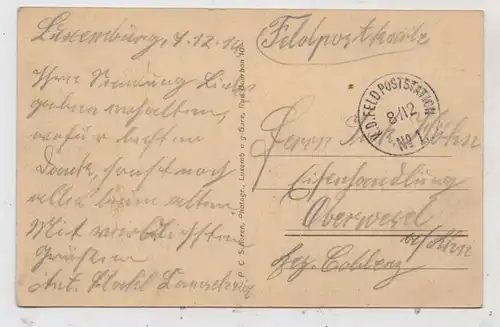 Luxemburg, 7.12.14
Ihre Sendung Liebes
gaben erhalten,
wofür besten
Dank, sonst noch
alles beim alten.
Mit
Grüßen
Ant.
P. C. S. Photogr., Luxemb. Rue Bourbon 10
Feldpostkarte
K.D. FELDPOSTSTATION
8/12
No 1
Herrn
Eisenhandlung
Oberwesel
a/Rhn
Bez. Coblenz